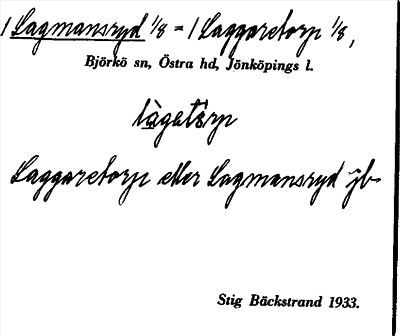 1 Lagmansryd 1/8 = 1 Laggaretorp 1/8,
Björkö sn, Östra hd, Jönköpings l.
lagetorp
Laggaretorp eller Lagmansryd jb
Stig Bäckstrand 1933.